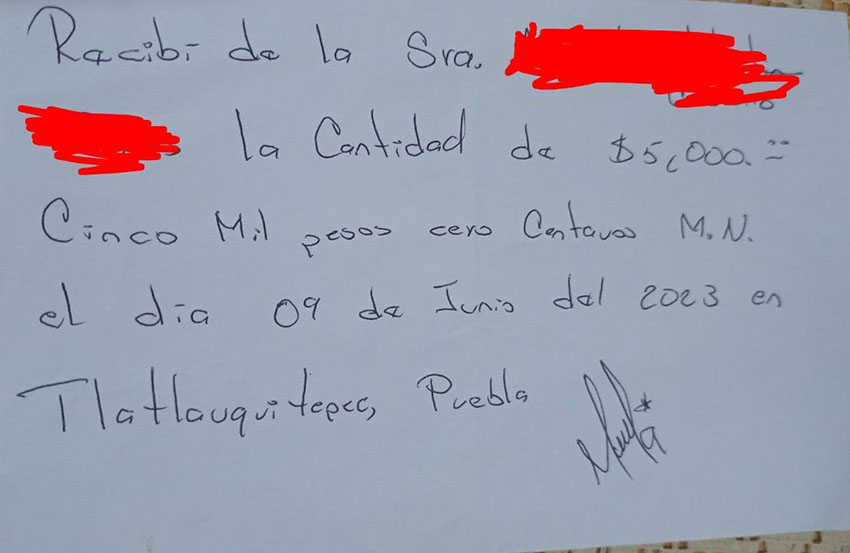 Recibi de la Sra.
la Cantidad de $5,000.=
Cinco Mil pesos cero Centavos M.N.
el día 09 de Junio del 2023 en
Tlatlauquitepec, Puebla